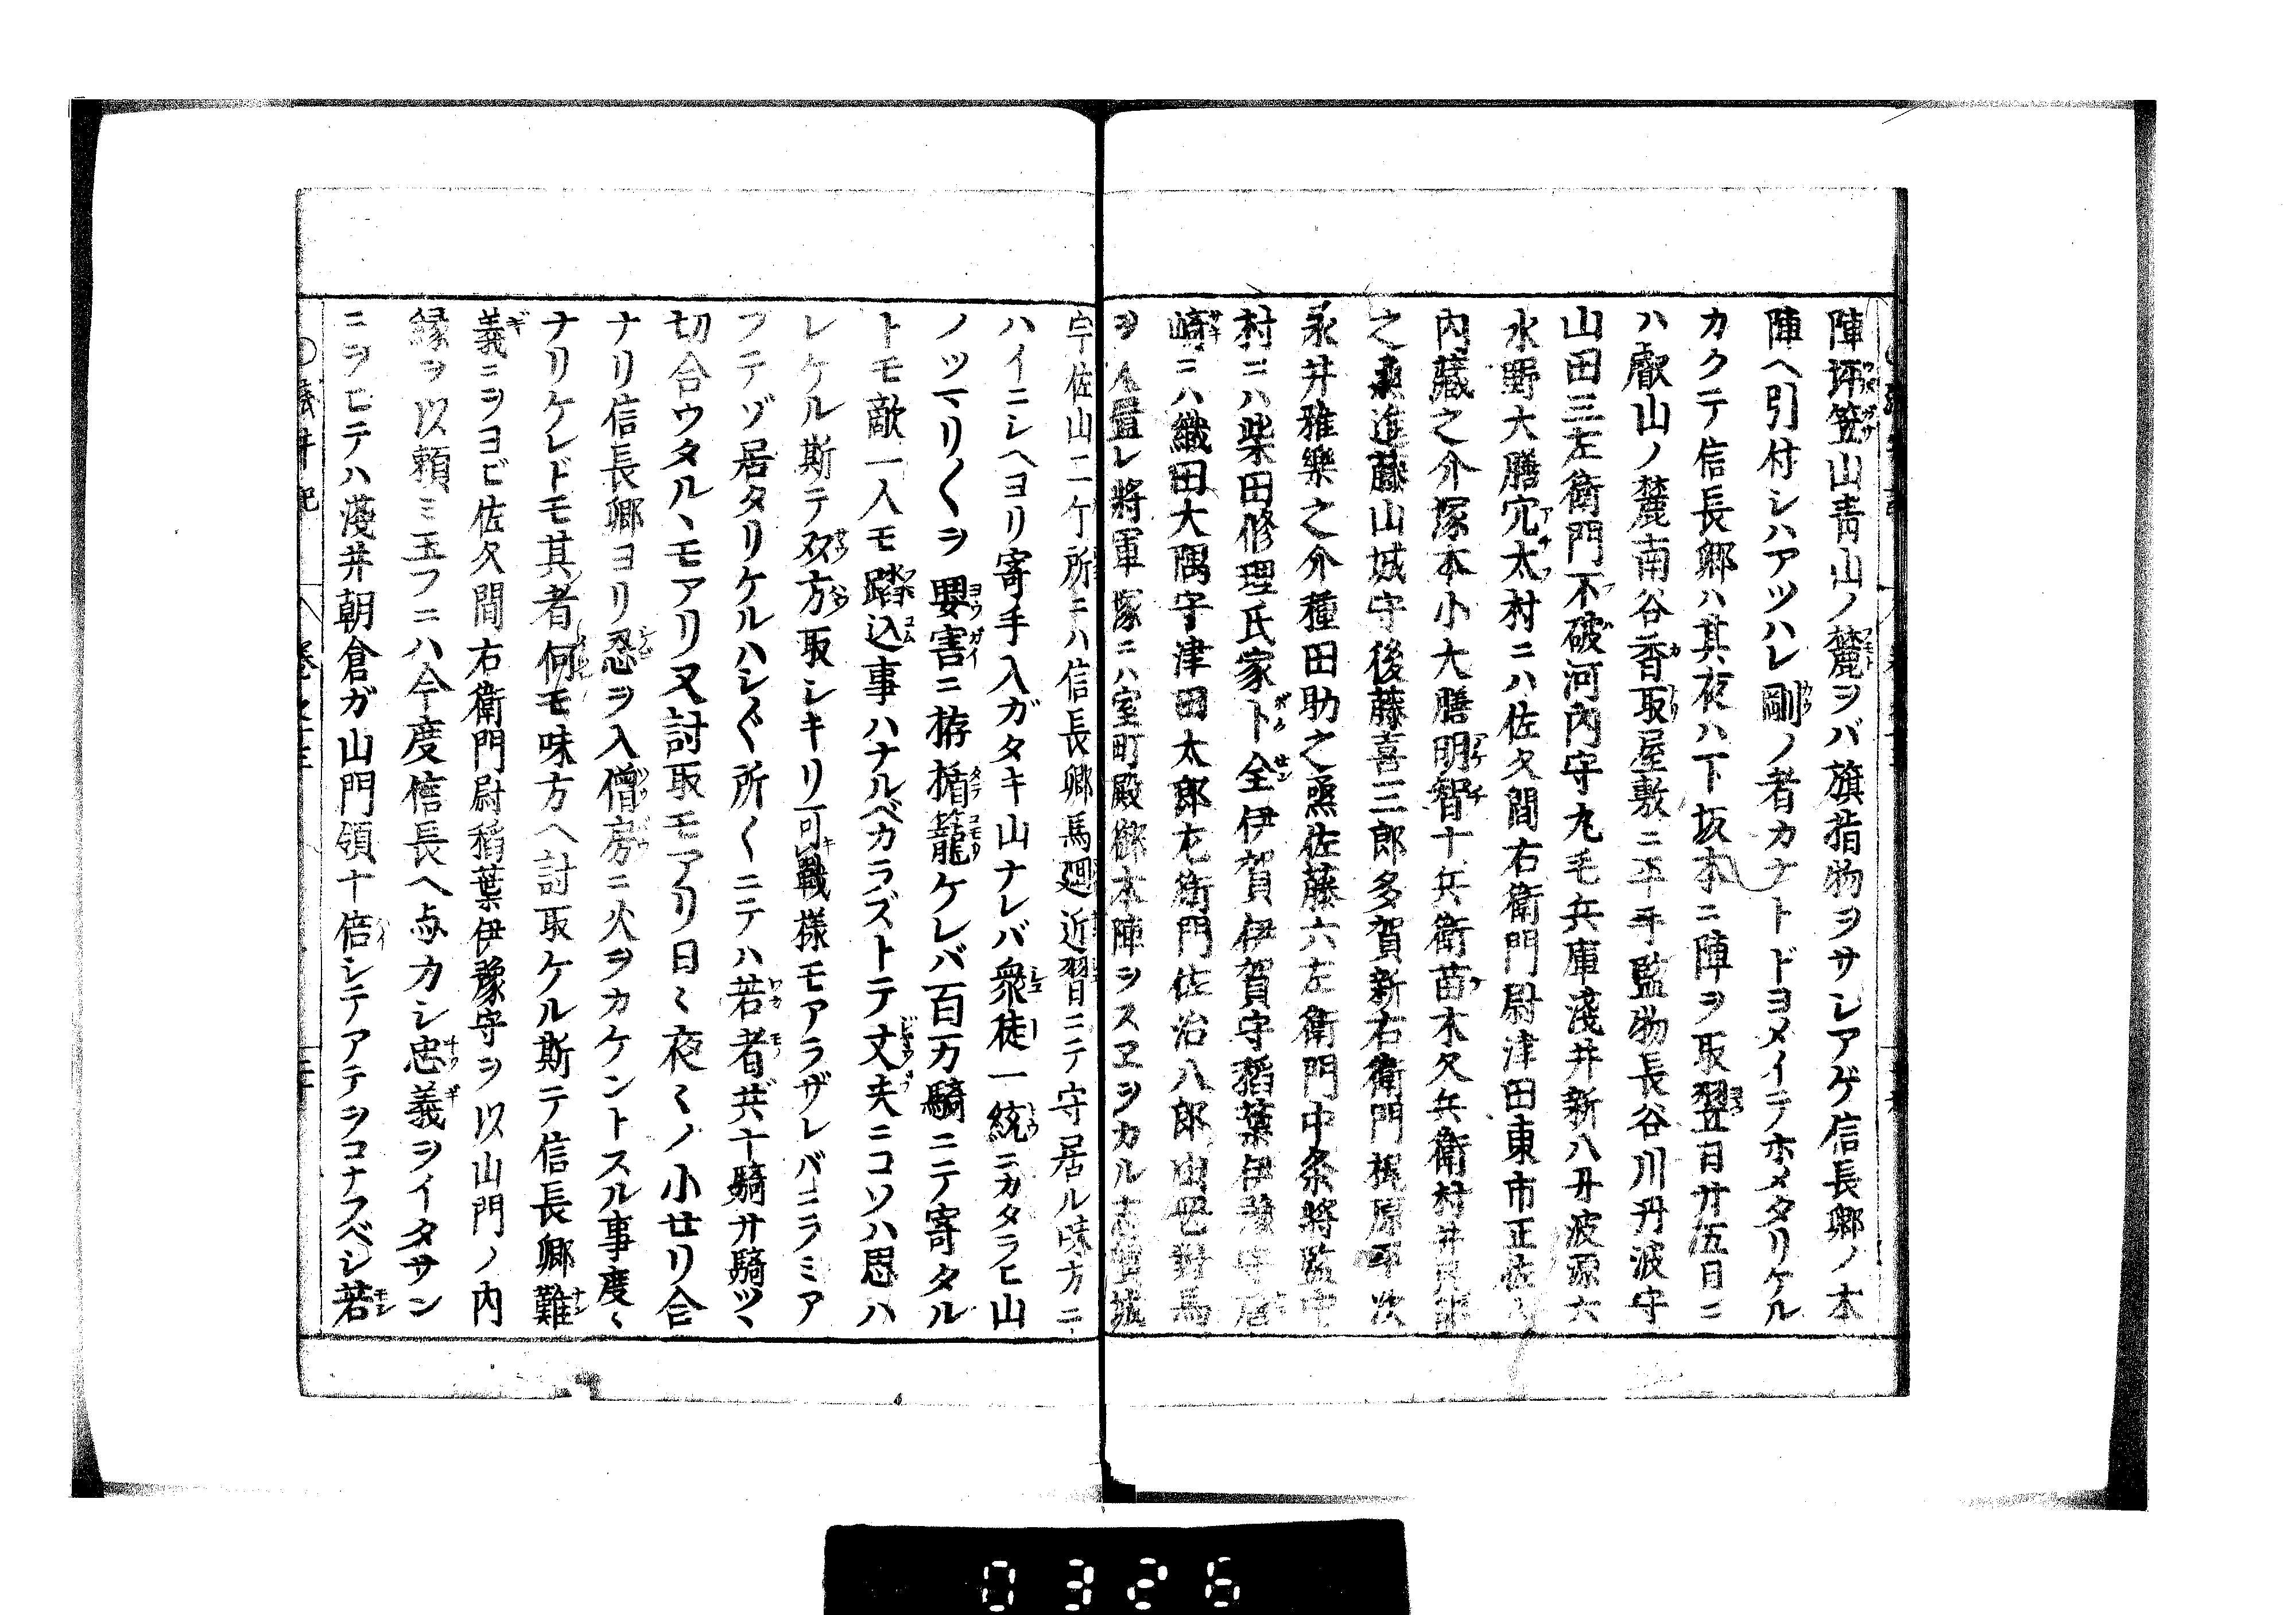 陣坪笠山青山ノ麓ヲバ旗指物ヲサシアゲ信長卿ノ本
陣ヘ引付シハアツハレ剛ノ者カナトドヨメイテホメタリケル
カクテ信長卿ハ其夜ハ下坂本ニ陣ヲ取翌日廿五日ニ
ハ叡山ノ麓南谷香取屋敷ニ平手監物長谷川丹波守
山田三左衛門不破河内守丸毛兵庫淺井新八丹波源六
水野大膳穴太村ニハ佐久間右衛門尉津田東市正佐々
内藏之介塚本小大膳明智十兵衛苗木久兵衛村井民部
之進藤山城守後藤喜三郎多賀新右衛門梶原平次
永井雅樂之介種田助之丞佐藤六左衛門中条將監中
村ニハ柴田修理氏家卜全伊賀伊賀守稻葉伊豫守唐
崎ニハ織田大隅守津田太郎左衛門佐治八郎山岡對馬
ヲ入置レ將軍塚ニハ室町殿御本陣ヲスヱヲカル志賀城
宇佐山二ケ所ニハ信長卿馬廻近習日ニテ守居ル味方ニ
ハイニシヘヨリ寄手入ガタキ山ナレバ衆徒一統ニカタラヒ山
ノツマリ〱ヲ要害ニ拵楯籠ケレバ百万騎ニテ寄タル
トモ敵一人モ蹈込事ハナルベカラズトテ丈夫ニコソハ思ハ
レケル斯テ双方取シキリ可戰様モアラザレバニラミア
フテゾ居タリケルハシ〲所〱ニテハ若者共十騎廿騎ツヽ
切合ウタルヽモアリ又討取モアリ日〻夜〻ノ小セリ合
ナリ信長卿ヨリ忍ヲ入僧房ニ火ヲカケントスル事度〻
ナリケレドモ其者何モ味方ヘ討取ケル斯テ信長卿難
義ニヲヨビ佐久間右衛門尉稻葉伊豫守ヲ以山門ノ内
縁ヲ以頼ミ玉フニハ今度信長ヘ与力シ忠義ヲイタサン
ニヲヒテハ淺井朝倉ガ山門領十倍シテアテヲコナフベシ若
淺井記 卷之十三